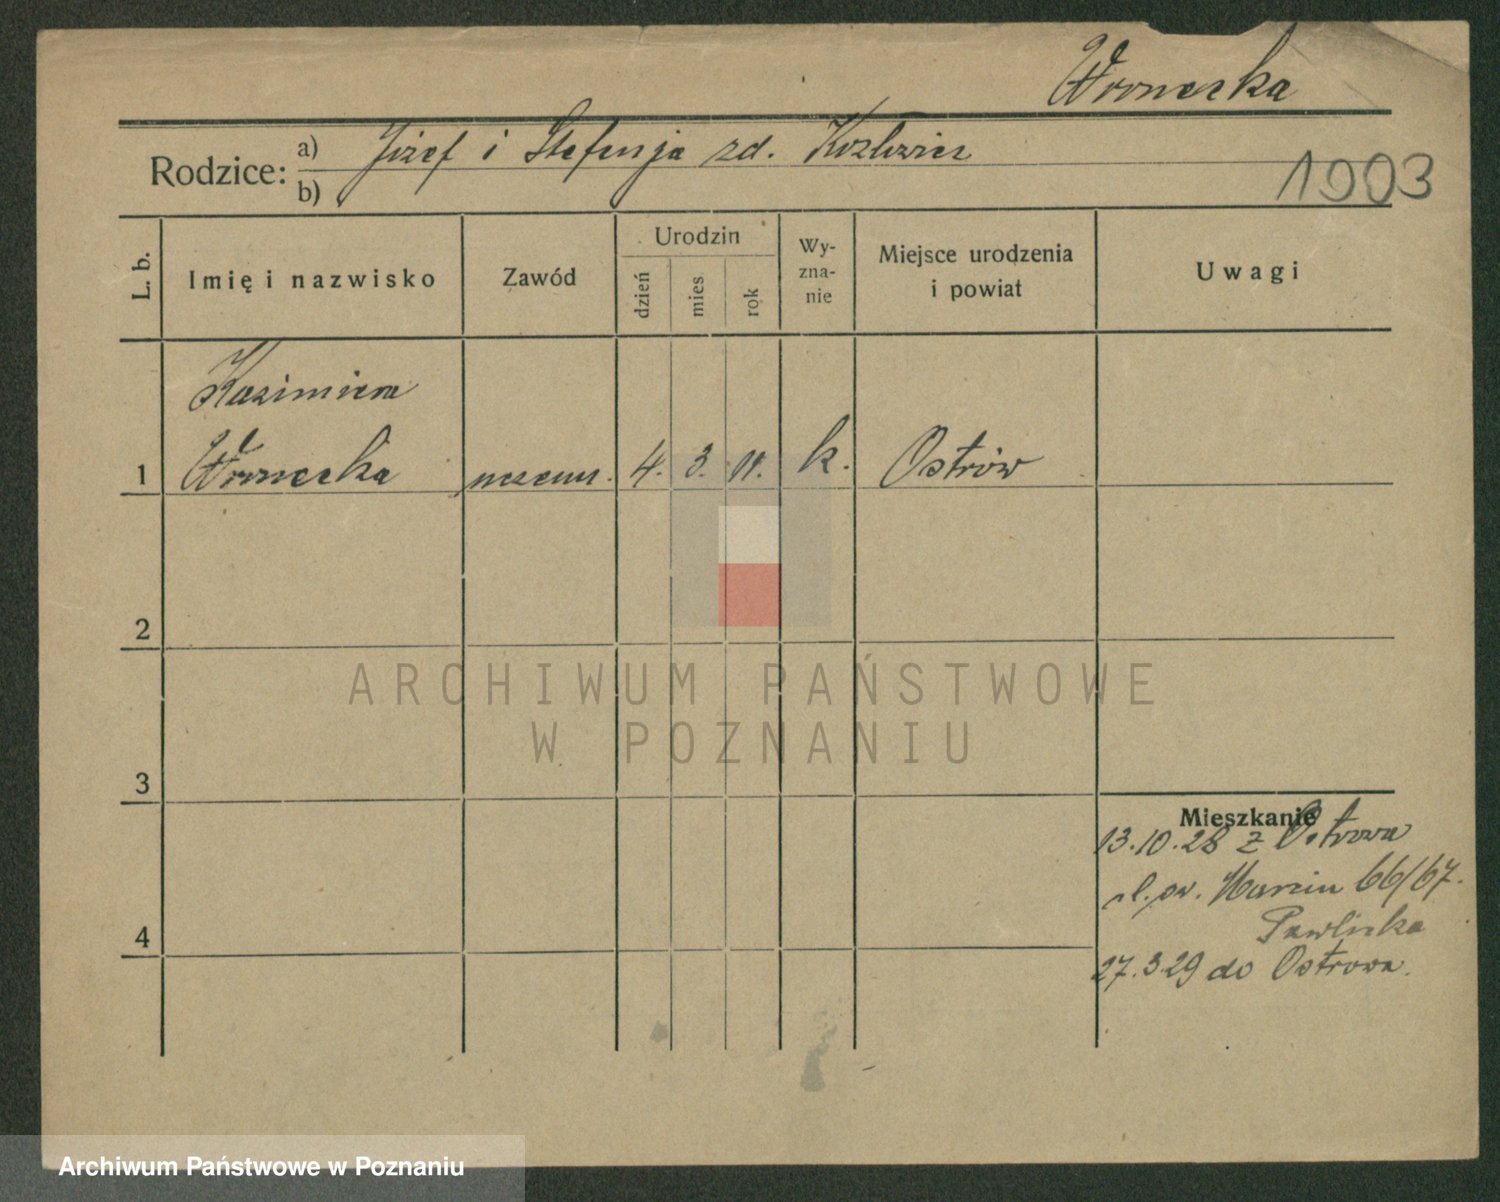 Wronecka
Rodzice:
a) Józef i Stefanja zd. Kozłowicz
b)
1903
L. b.
Imię i nazwisko
Zawód
Urodzin
dzień
mies
rok
Wy-
zna-
nie
Miejsce urodzenia
i powiat
Uwagi
Kazimiera
1 Wronecka uczenn. 4. 3. 11. k. Ostrów
2
3
4
Mieszkanie
13.10.28 z Ostrowa
ul. św. Marcin 66/67.
Pawlicka
27.3.29 do Ostrowa.
ARCHIWUM PAŃSTWOWE
W POZNANIU
Archiwum Państwowe w Poznaniu